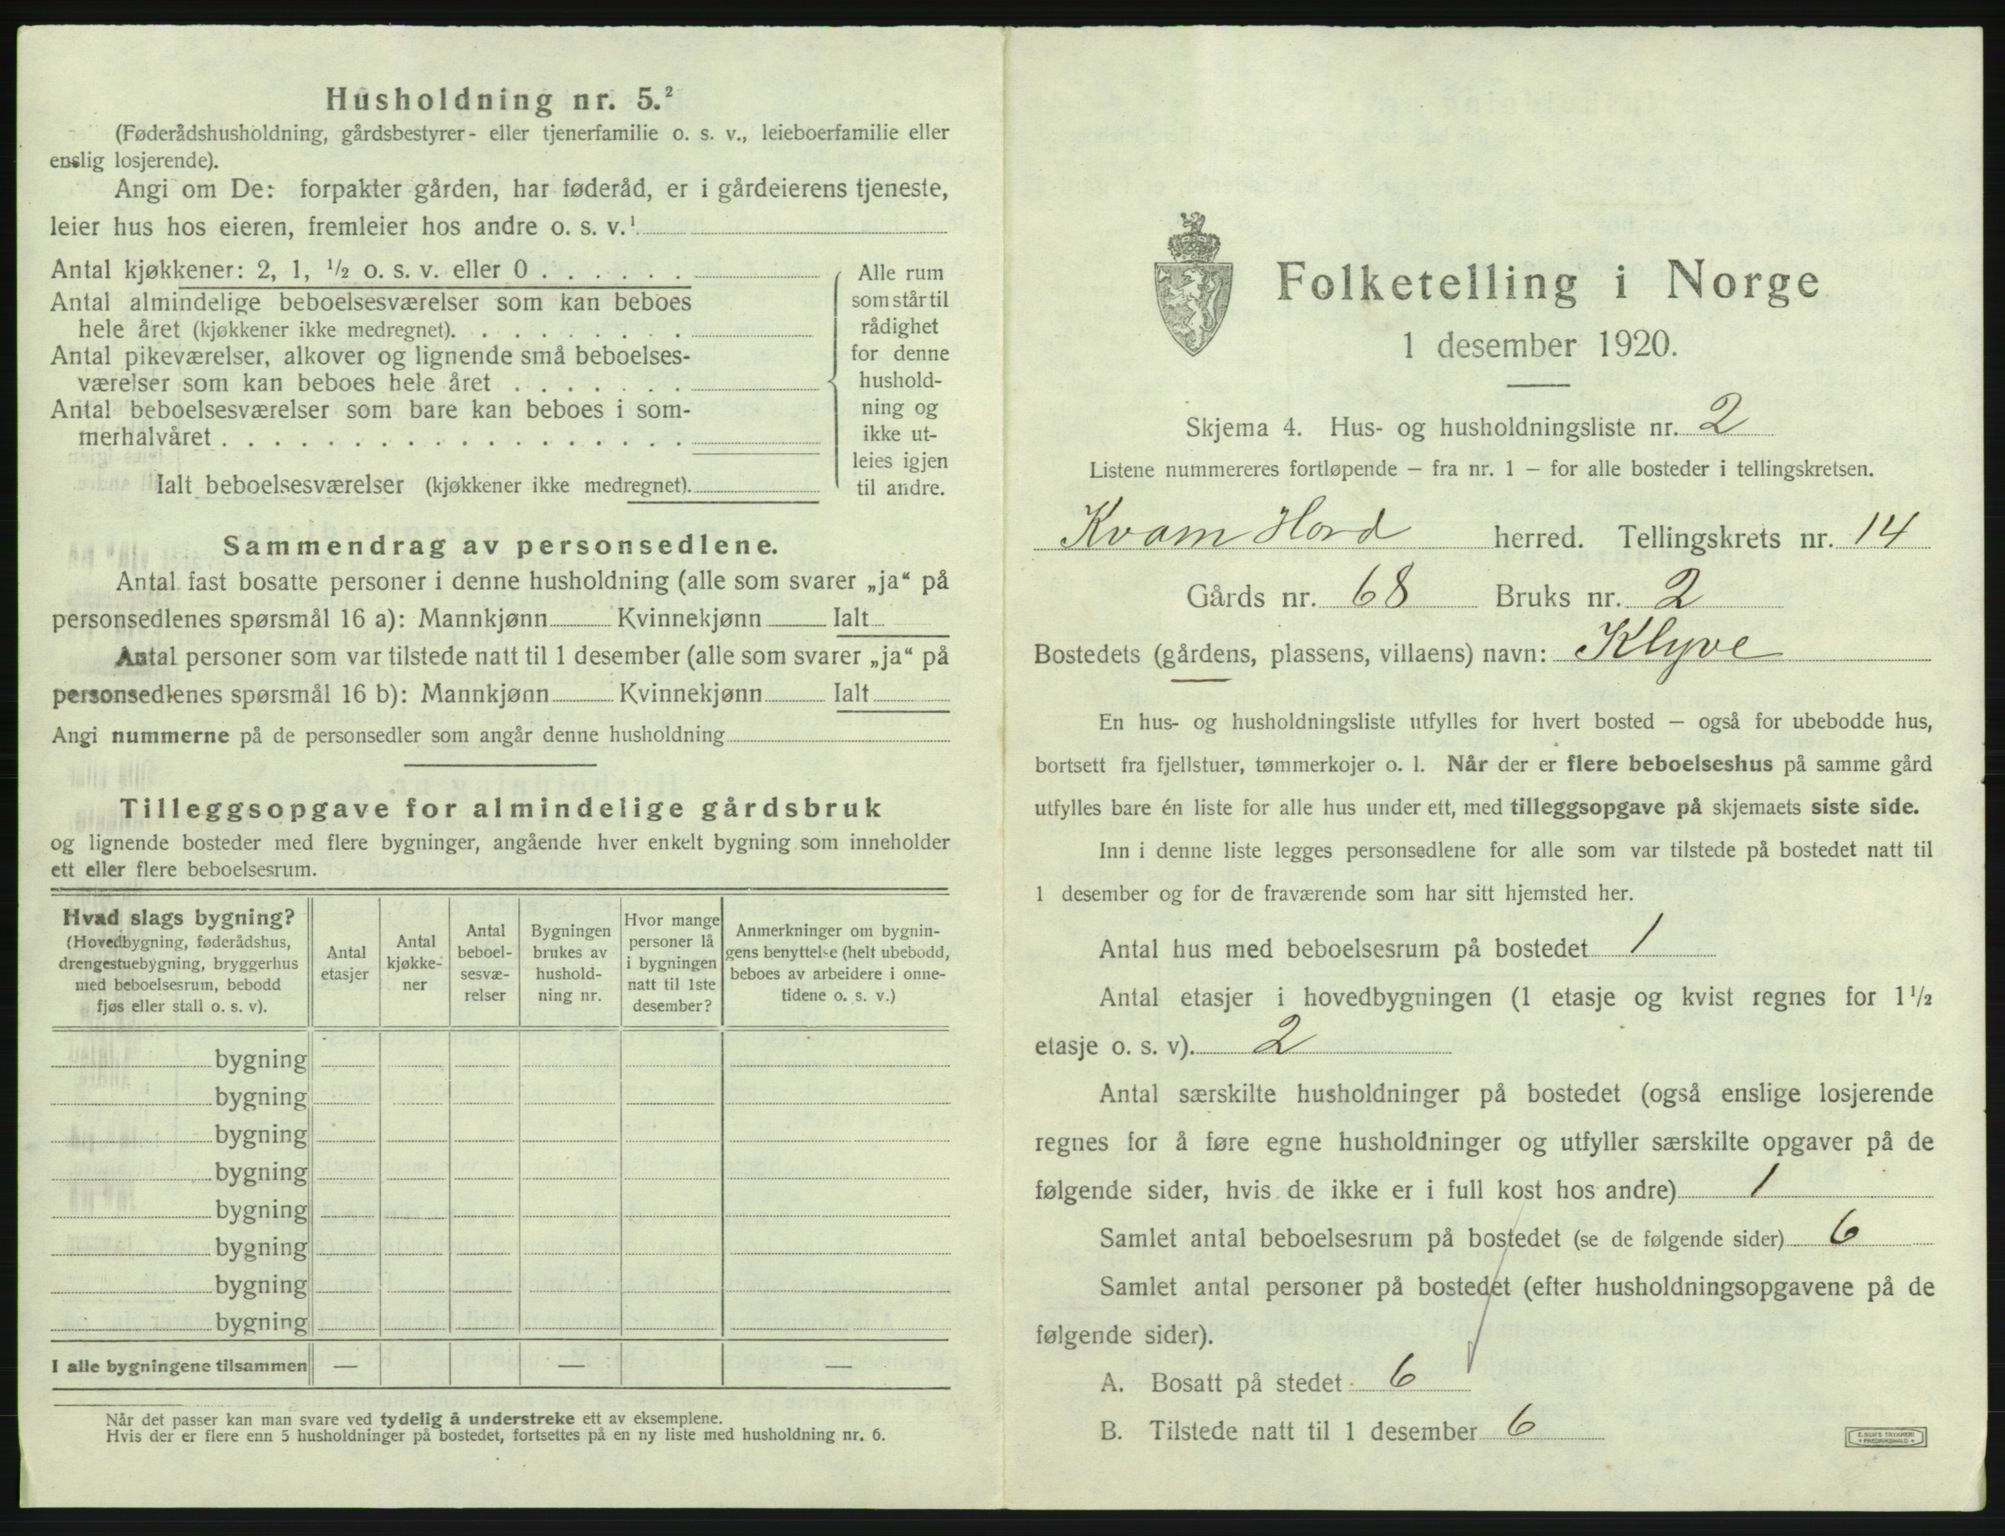 Husholdning nr. 5.²
(Føderådshusholdning, gårdsbestyrer- eller tjenerfamilie o. s. v., leieboerfamilie eller
enslig losjerende).
Angi om De: forpakter gården, har føderåd, er i gårdeierens tjeneste,
leier hus hos eieren, fremleier hos andre o. s. v.¹
Antal kjøkkener: 2, 1, ½ o. s. v. eller 0 . . . . . .
Antal almindelige beboelsesværelser som kan beboes
hele året (kjøkkener ikke medregnet). . . . . . . . .
Antal pikeværelser, alkover og lignende små beboelses-
værelser som kan beboes hele året . . . . . . .
Antal beboelsesværelser som bare kan beboes i som-
merhalvåret . . . . . . . . . . . . . . . . . .
Ialt beboelsesværelser (kjøkkener ikke medregnet).
Alle rum
som står til
rådighet
for denne
hushold-
ning og
ikke ut-
leies igjen
til andre.
Sammendrag av personsedlene.
Antal fast bosatte personer i denne husholdning (alle som svarer „ja“ på
personsedlenes spørsmål 16 a): Mannkjønn Kvinnekjønn Ialt
Antal personer som var tilstede natt til 1 desember (alle som svarer „ja“ på
personsedlenes spørsmål 16 b): Mannkjønn Kvinnekjønn Ialt
Angi nummerne på de personsedler som angår denne husholdning
Tilleggsopgave for almindelige gårdsbruk
og lignende bosteder med flere bygninger, angående hver enkelt bygning som inneholder
ett eller flere beboelsesrum.
Hvad slags bygning?
(Hovedbygning, føderådshus,
drengestuebygning, bryggerhus
med beboelsesrum, bebodd
fjøs eller stall o. s. v).
Antal
etasjer
Antal
kjøkke-
ner
Antal
beboel-
sesvæ-
relser
Bygningen
brukes av
hushold-
ning nr.
Hvor mange
personer lå
i bygningen
natt til 1ste
desember?
Anmerkninger om bygnin-
gens benyttelse (helt ubebodd,
beboes av arbeidere i onne-
tidene o. s. v.)
bygning
bygning
bygning
bygning
bygning
bygning
bygning
bygning
I alle bygningene tilsammen — — —
Når det passer kan man svare ved tydelig å understreke ett av eksemplene.
Hvis der er flere enn 5 husholdninger på bostedet, fortsettes på en ny liste med husholdning nr. 6.
Folketelling i Norge
1 desember 1920.
Skjema 4. Hus- og husholdningsliste nr. 2
Listene nummereres fortløpende – fra nr. 1 – for alle bosteder i tellingskretsen.
Kvam Hord herred. Tellingskrets nr. 14
Gårds nr. 68 Bruks nr. 2
Bostedets (gårdens, plassens, villaens) navn: Klyve
En hus- og husholdningsliste utfylles for hvert bosted – også for ubebodde hus,
bortsett fra fjellstuer, tømmerkojer o. l. Når der er flere beboelseshus på samme gård
utfylles bare én liste for alle hus under ett, med tilleggsopgave på skjemaets siste side.
Inn i denne liste legges personsedlene for alle som var tilstede på bostedet natt til
1 desember og for de fraværende som har sitt hjemsted her.
Antal hus med beboelsesrum på bostedet 1
Antal etasjer i hovedbygningen (1 etasje og kvist regnes for 1½
etasje o. s. v). 2
Antal særskilte husholdninger på bostedet (også enslige losjerende
regnes for å føre egne husholdninger og utfyller særskilte opgaver på de
følgende sider, hvis de ikke er i full kost hos andre) 1
Samlet antal beboelsesrum på bostedet (se de følgende sider) 6
Samlet antal personer på bostedet (efter husholdningsopgavene på de
følgende sider).
A. Bosatt på stedet 6
B. Tilstede natt til 1 desember 6